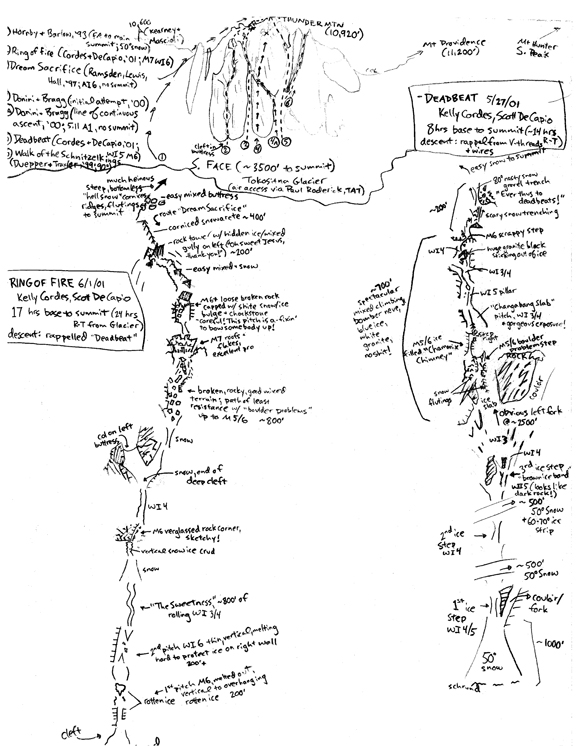 10,600
Kearney + Mascioli
THUNDER MTN
(10,920')
Mt Providence
(11,200')
Mt Hunter
S. Peak
) Hornby + Barlow, '93 (FA to main
summit; 50° snow)
) Ring of fire (Cordes + DeCapio, '01; M7 WI6)
) Dream Sacrifice (Ramsden, Lewis,
Hall, '97; AI6, no summit)
) Donini + Bragg (initial attempt, '00)
) Donini + Bragg (line of continuous
ascent, '00; 5.11 A1, no summit)
) Deadbeat (Cordes + DeCapio, '01;
WI5 M6)
) Walk of the Schnitzelkings
cleft in buttress
S. FACE (~3500' to summit)
Tokositna Glacier
(air access via Paul Roderick, TAT)
- DEADBEAT 5/27/01
Kelly Cordes, Scott DeCapio
8 hrs base to summit (~14 hrs R-T)
descent: rappel from V-threads
+ wires
easy snow to summit
much heinous
steep, bottomless
"hell snow" cornices
ridges, flutings
to summit
easy mixed buttress
route "Dream Sacrifice"
corniced snow arete ~400'
rock tower w/ hidden ice/mixed
gully on left (oh sweet Jesus,
thank you!) ~200'
easy mixed + snow
RING OF FIRE 6/1/01
Kelly Cordes, Scott DeCapio
17 hrs base to summit (24 hrs
R-T from Glacier)
descent: rappelled "Deadbeat"
M6+ loose broken rock
capped w/ shite snow/ice
bulge + chockstone
"careful! This pitch is a-fixin'
to bow somebody up!
M7 roofs
flakes
excellent pro
broken, rocky, good mixed
terrain; path of least
resistance w/ "boulder problems"
up to M5/6 ~800'
snow
col on left
buttress
snow, end of
deep cleft
WI4
M6 verglassed rock corner,
sketchy!
vertical snow ice crud
snow
"The Sweetness," ~800' of
rolling WI 3/4
2nd pitch WI6 thin, vertical, melting
hard to protect ice on right wall
200'+
1st pitch M6,
vertical to overhanging
rotten ice 200'
rotten ice
cleft
80° nasty snow
gravel trench
"Ever thus to
deadbeats!"
~200'
scary snow trenching
M6 scrappy step
WI4
huge granite block
sticking out of ice
WI3/4
WI5 pillar
"Changabang Slab"
pitch, WI 3/4
+ gorgeous exposure!
~700'
spectacular
mixed climbing
plumber neve,
blue ice,
white
granite,
no shit!
M5/6 ice
filled "Chamonix
Chimney"
M5/6 boulder
problem step
ROCK
couloir
snow
flutings
ice
slab
obvious left fork
@ ~2500'
WI3
WI4
3rd ice step
- brown ice band
WI5 (looks like
dark rock!)
~500'
50° snow
+ 60-70° ice
strip
2nd ice
step
WI4
~500'
50° snow
1st ice
step
WI4/5
couloir
fork
~1000'
50°
snow
schrund